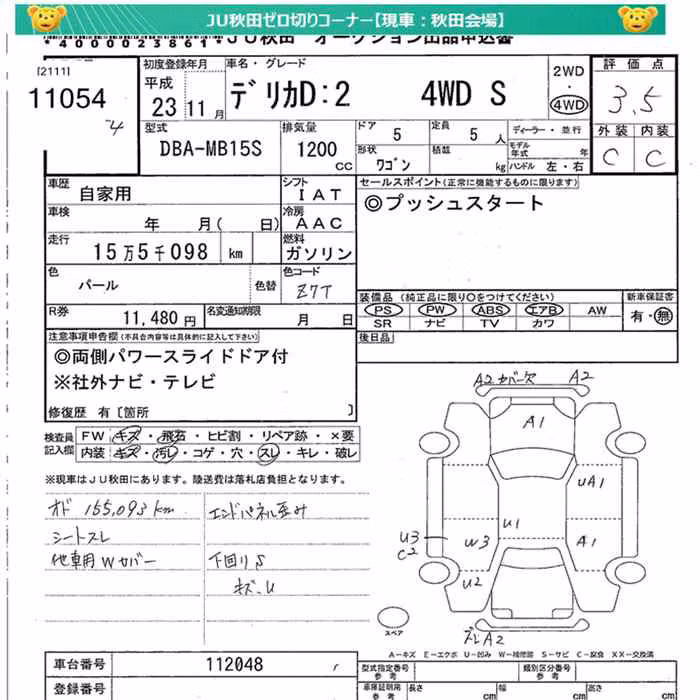 JU秋田ゼロ切りコーナー【現車：秋田会場】
*4000023861* JU秋田 オークション出品申込書
[2111]
11054
4
初度登録年月
平成
23 11月
車名・グレード
デリカD:2 4WD S
2WD
・
4WD
評価点
3.5
外装 内装
C C
型式
DBA-MB15S
排気量
1200
cc
ドア 5
定員 5 人
ディーラー・並行
形状
ワゴン
積載
kg
モデル年式 年
ハンドル 左・右
車歴
自家用
シフト
IAT
セールスポイント(正常に機能するものに限ります)
◎プッシュスタート
車検
年 月( 日)
冷房
AAC
走行
15万5千098 km
燃料
ガソリン
色
パール
色替
色コード
Z7T
装備品 (純正品に限り○をつけてください)
PS PW ABS エアB AW
SR ナビ TV カワ
新車保証書
有・無
R券
11,480円
名変通知期限
月 日
後日品
注意事項申告欄(不具合内容等は具体的に記入して下さい)
◎両側パワースライドドア付
※社外ナビ・テレビ
修復歴 有〔箇所 〕
検査員記入欄
FW キズ・飛石・ヒビ割・リペア跡・×要
内装 キズ・汚レ・コゲ・穴・スレ・キレ・破レ
※現車はJU秋田にあります。陸送費は落札店負担となります。
オド 155,093 km
シートスレ
他車用Wカバー
エンドパネル歪み
下回りS
キズ.U
A2 カバー欠 A2
A1
UA1
U1
U3
C2
W3
A1
U2
スペア
ズレA2
A－キズ E－エクボ U－凹み W－補修跡 S－サビ C－腐食 XX－交換済
車台番号
112048
登録番号
型式指定番号
参考
類別区分番号
参考
車庫証明用
参考
長さ cm
幅 cm
高さ cm